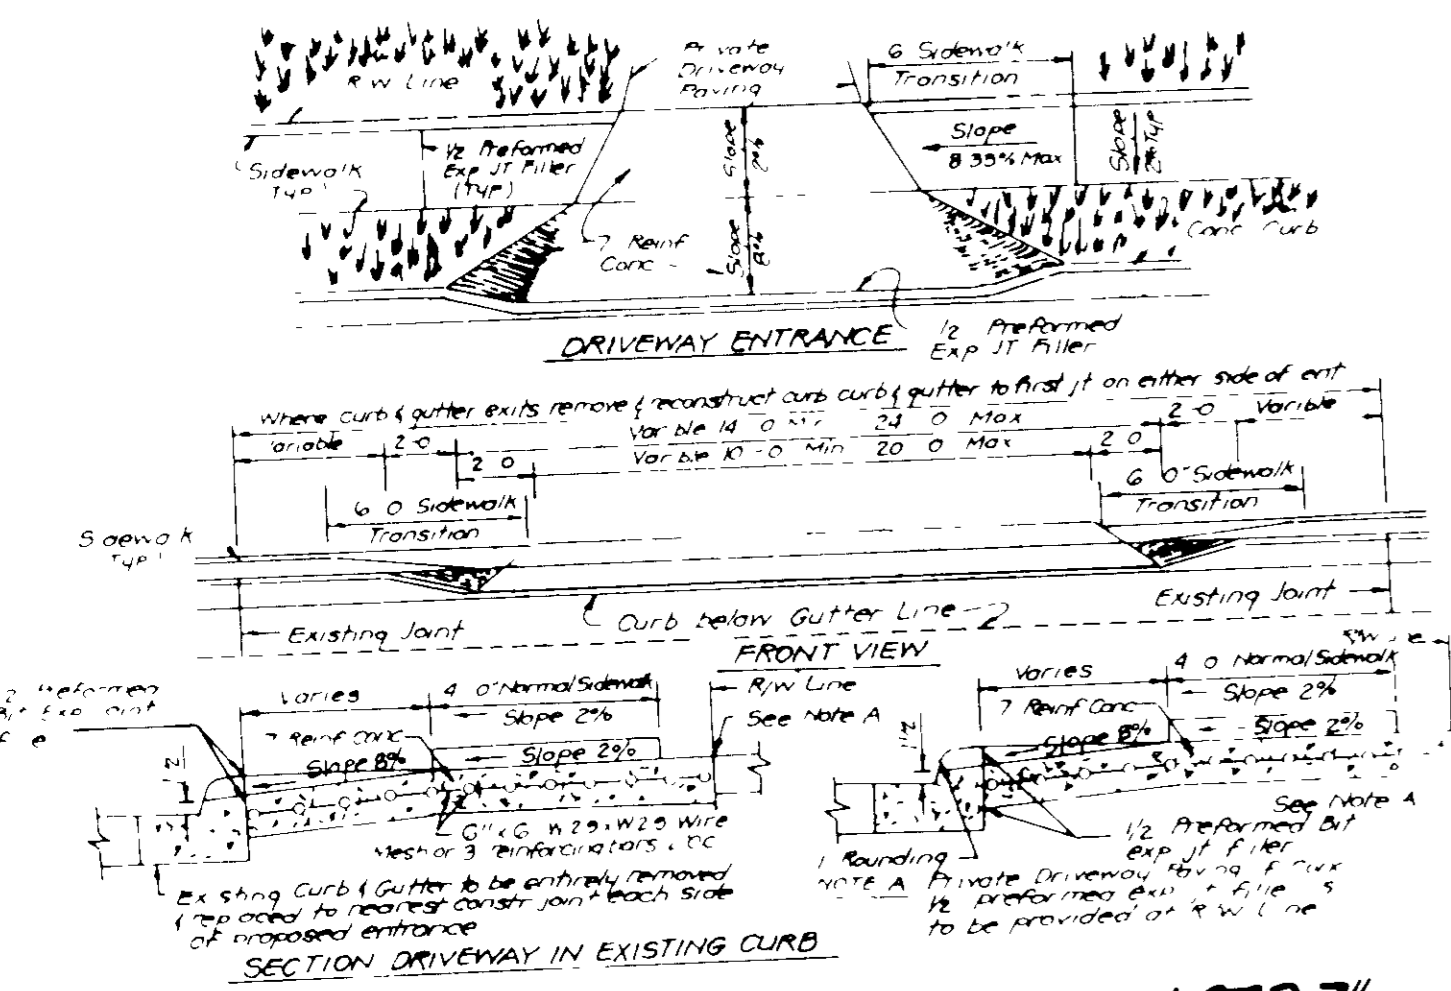 Private
Driveway
Paving
6 Sidewalk
Transition
R W Line
Sidewalk
Typ
1/2 Preformed
Exp JT Filler
(Typ)
Slope
2%
Slope
8.33% Max
Slope
2% Typ
7 Reinf
Conc
Slope
8%
Conc Curb
DRIVEWAY ENTRANCE
1/2 Preformed
Exp JT Filler
Where curb & gutter exits remove & reconstruct curb curb & gutter to first jt on either side of ent
Variable
2-0
Varible 14 0 Min 24 0 Max
2-0
Varible
2 0
Varible 10-0 Min 20 0 Max
2 0
6 0 Sidewalk
Transition
6 0" Sidewalk
Transition
Sidewalk
Typ
Existing Joint
Curb below Gutter Line
Existing Joint
FRONT VIEW
Preformed
Varies
4 0" Normal Sidewalk
Slope 2%
R/W Line
See Note A
7 Reinf Conc
Slope 8%
Slope 2%
1/2
6" x 6 W29xW29 Wire
Mesh or 3 reinforcing bars
Existing Curb & Gutter to be entirely removed
& replaced to nearest constr joint each side
of proposed entrance
SECTION DRIVEWAY IN EXISTING CURB
Varies
4 0 Normal Sidewalk
Slope 2%
7 Reinf Conc
Slope 8%
Slope 2%
1 1/2
See Note A
1/2 Preformed Bit
exp jt filler
1 Rounding
NOTE A Private Driveway Paving
1/2 preformed exp jt filler is
to be provided at R W Line